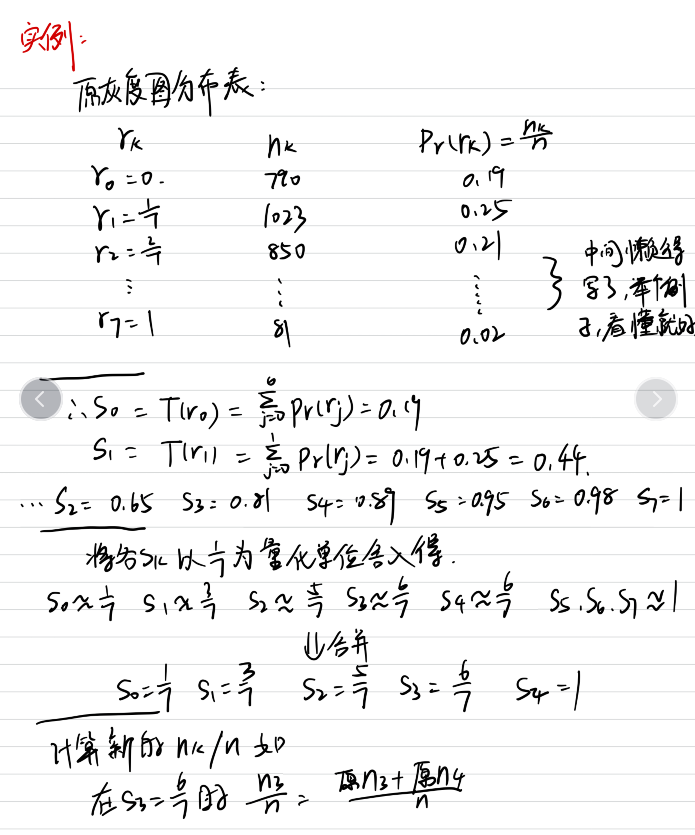 实例:
原灰度图分布表:
rk nk Pr(rk) = nk/n
r0 = 0. 790 0.19
r1 = 1/7 1023 0.25
r2 = 2/7 850 0.21
⋮ ⋮ ⋮
r7 = 1 81 0.02
} 中间懒得
写了,举个例
子,看懂就好
∴ S0 = T(r0) = Σ_{j=0}^{0} Pr(rj) = 0.19
S1 = T(r1) = Σ_{j=0}^{1} Pr(rj) = 0.19+0.25 = 0.44.
… S2 = 0.65 S3 = 0.81 S4 = 0.89 S5 = 0.95 S6 = 0.98 S7 = 1
将各Sk以1/7为量化单位舍入得.
S0 ≈ 1/7 S1 ≈ 3/7 S2 ≈ 5/7 S3 ≈ 6/7 S4 ≈ 6/7 S5、S6、S7 ≈ 1
⇓ 合并
S0 = 1/7 S1 = 3/7 S2 = 5/7 S3 = 6/7 S4 = 1
计算新的 nk/n 如
在 S3 = 6/7 时 n3/n = (原n3 + 原n4)/n